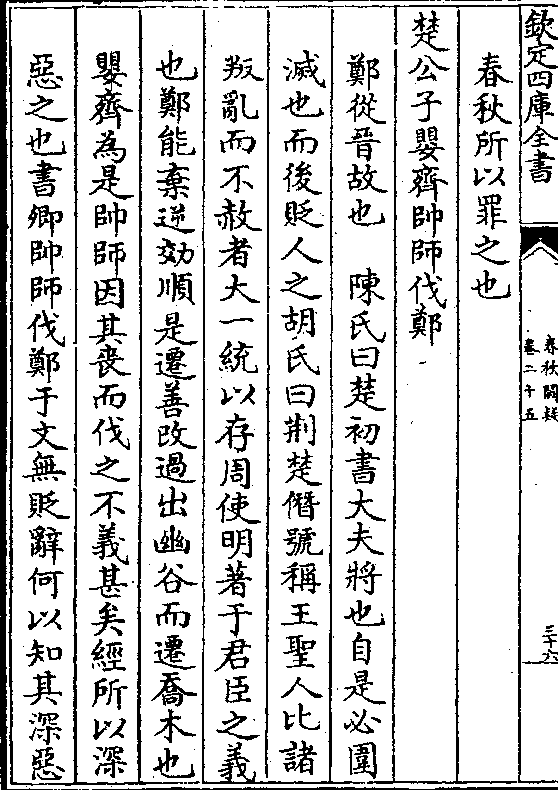 欽定四庫全書
春秋闕疑
卷二十五
三十六
春秋所以罪之也
楚公子嬰齊帥師伐鄭
鄭從晉故也　陳氏曰楚初書大夫將也自是必圍
滅也而後貶人之胡氏曰荆楚僭號稱王聖人比諸
叛亂而不赦者大一統以存周使明著于君臣之義
也鄭能棄逆効順是遷善改過出幽谷而遷喬木也
嬰齊為是帥師因其喪而伐之不義甚矣經所以深
惡之也書卿帥師伐鄭于文無貶辭何以知其深惡